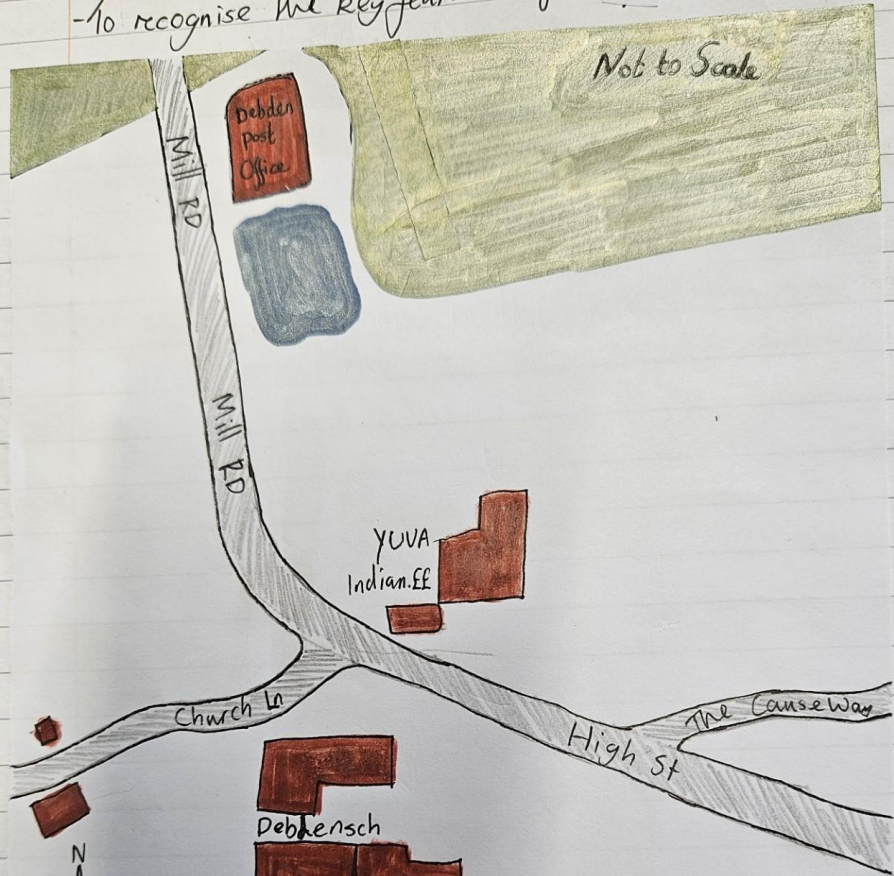 -To recognise the key
Not to Scale
Debden
post
Office
Mill RD
Mill RD
YUVA
Indian.££
Church Ln
The CauseWay
High St
Debdensch
N